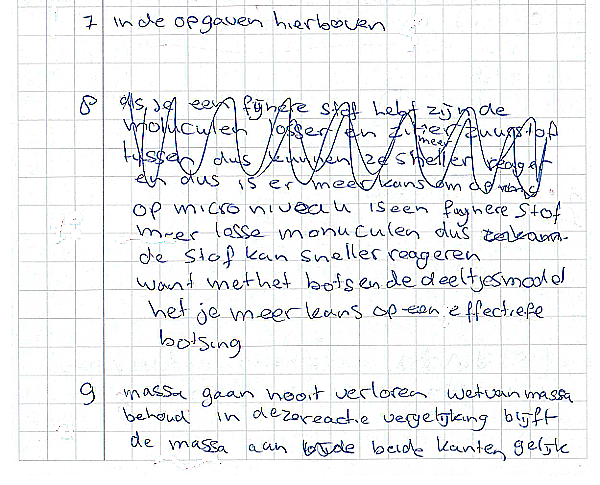 7 in de opgaven hierboven
8 als je een fijnere stof hebt zijn de
moluculen losser en zit er zuurstof
tussen dus kunnen ze sneller reager
en dus is er meer kans om de
op micro niveau is een fuynere stof
meer losse monuculen dus
de stof kan sneller reageren
want met het botsende deeltjesmodel
het je meer kans op een effectiefe
botsing
9 massa gaan nooit verloren wet van massa
behoud in deze reactie vergelijking blijft
de massa aan beide kanten gelijk